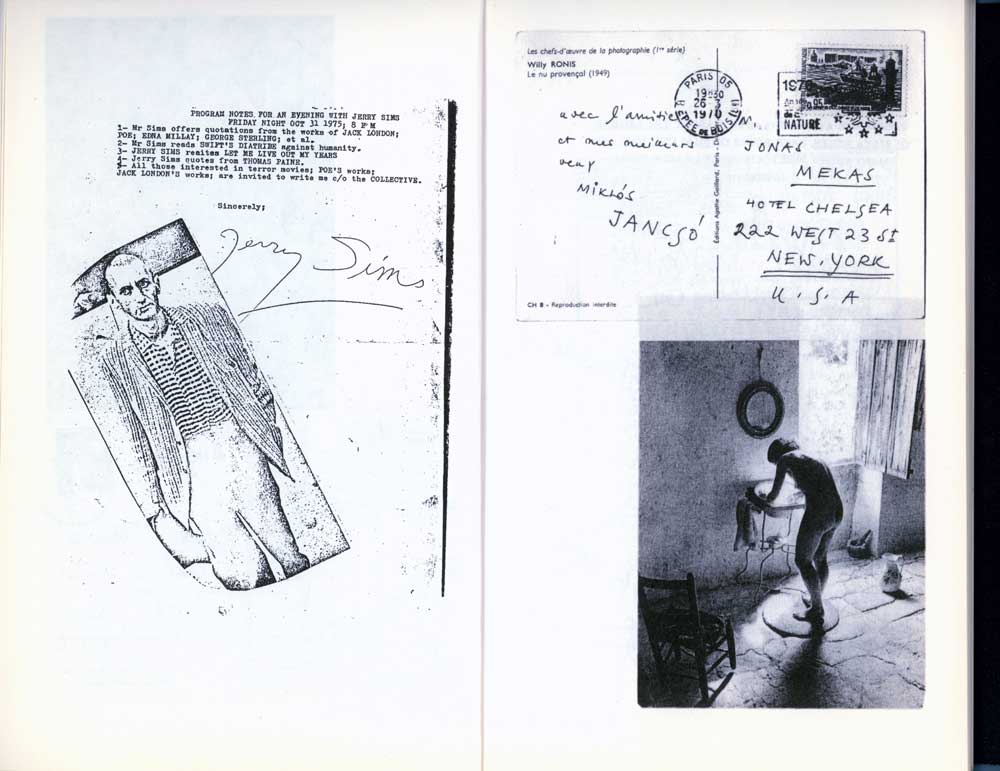 PROGRAM NOTES FOR AN EVENING WITH JERRY SIMS
FRIDAY NIGHT OCT 31 1975; 8 P M
1- Mr Sims offers quotations from the works of JACK LONDON;
POE; EDNA MILLAY; GEORGE STERLING; et al.
2- Mr Sims reads SWIFT'S DIATRIBE against humanity.
3- JERRY SIMS recites LET ME LIVE OUT MY YEARS
4- Jerry Sims quotes from THOMAS PAINE.
All those interested in terror movies; POE'S works;
JACK LONDON's works; are invited to write me c/o the COLLECTIVE.
Sincerely;
Jerry Sims
Les chefs-d'œuvre de la photographie (1re série)
Willy RONIS
Le nu provençal (1949)
PARIS 05
19H30
26-3
1970
R. EPEE DE BOIS (5e)
1970
NATURE
avec l'amitié
et mes meilleurs
veux
MIKLÓS
JANCSÓ
Editions Agathe Gaillard, Paris
M.
JONAS
MEKAS
HOTEL CHELSEA
222 WEST 23 ST
NEW.YORK
U.S.A
CH 8 - Reproduction interdite